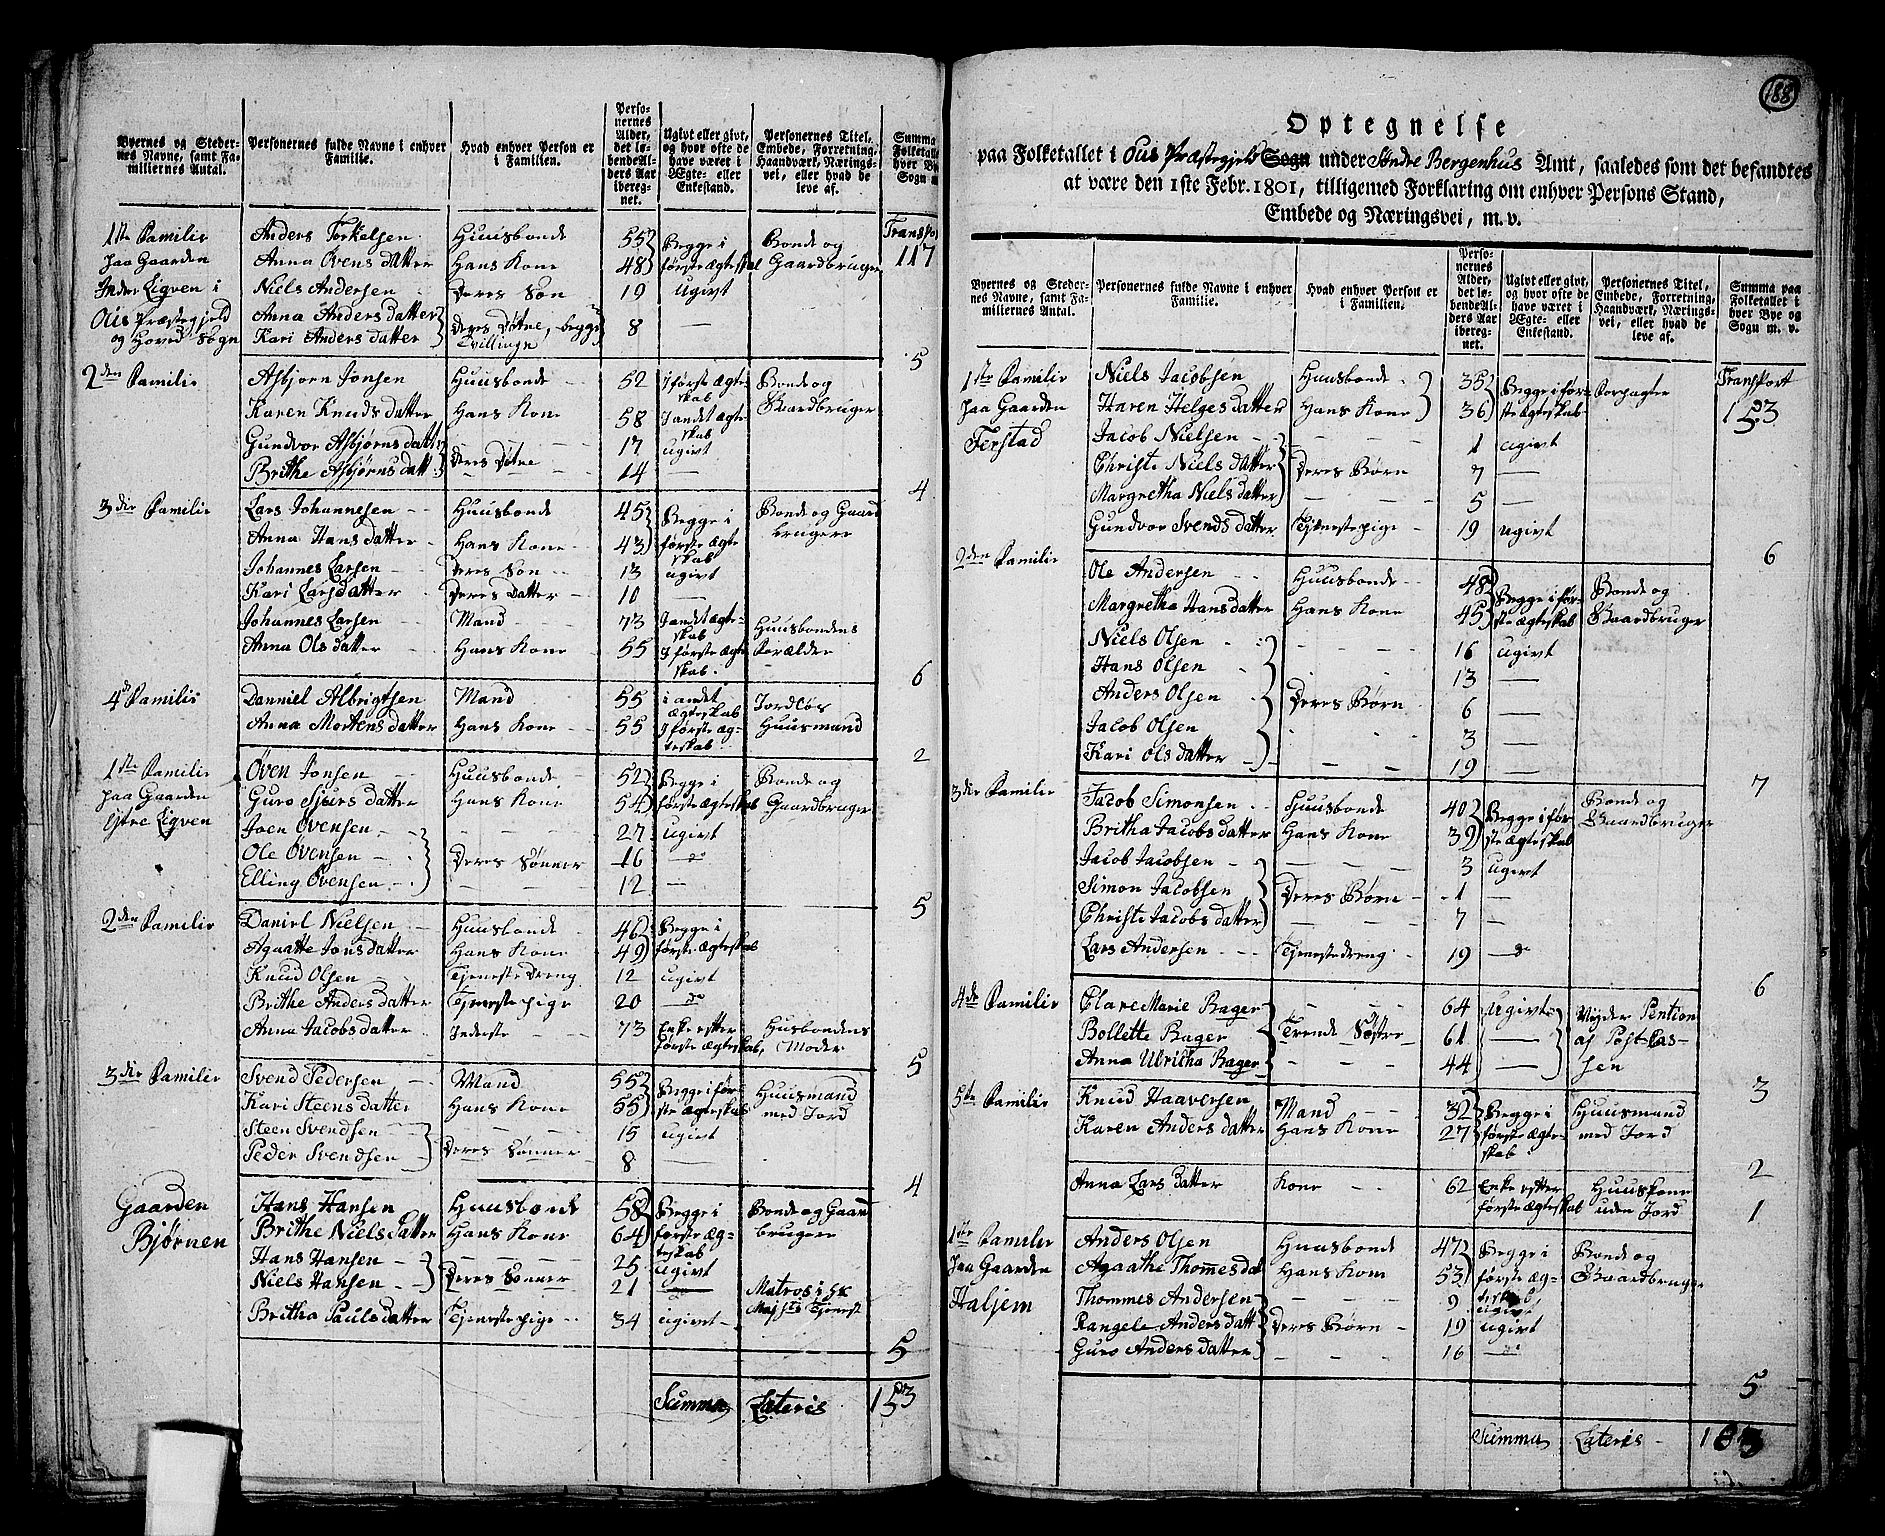 Byernes og Steder-
nes Navne, samt Fa-
miliernes Antal.
Personernes fulde Navne i enhver
Familie.
Hvad enhver Person er
i Familien.
Perso-
nernes
Alder,
det lø-
bende Al-
ders Aar
ibereg-
net.
Ugivt eller givt,
og hvor ofte de
have været i
Ægte- eller
Enkestand.
Personernes Titel,
Embede, Forretning,
Haandværk, Nærings-
vei, eller hvad de
leve af.
Summa
Folketalle
hver By
Sogn m
Transpo
1ste Familie Anders Torkelsen Huusbonde 55 Begge i Bonde og 117
paa Gaarden Anna Övens datter Hans Kone 48 første ægteskab Gaardbruger
Indre Ligven i Niels Andersen Deres Søn 19 Ugivt
Ous Præstegjeld Anna Anders datter Deres Døtre, begge 8 —
og Hoved Sogn Kari Anders datter Tvillinge
5
2den Familie Asbjørn Jonsen Huusbonde 52 I første ægte Bonde og
skab
Karen Knuds datter Hans Kone 58 I andet ægte Gaardbruger
skab
Gundvor Asbjørns datt Deres Døtre 17 ugivt
Brithe Asbjørns datt 14 —
4
3die Familie Lars Johannesen Huusbonde 45 Begge i Bonde og Gaard
Anna Hans datter Hans Kone 43 første ægte bruger
skab
Johannes Larsen Deres Søn 13 ugivt
Kari Larsdatter Deres Datter 10 —
Johannes Larsen Mand 73 I andet ægte- Huusbondens
skab
Anna Olsdatter Hans Kone 55 I første ægte Forældre
skab
6
4de Familie Danniel Albrigtsen Mand 55 i andet Jordløs
ægteskab
Anna Mortens datter Hans Kone 55 I første æg- Huusmand
teskab
2
1ste Familie Öven Jonsen Huusbonde 52 Begge i Bonde og
paa Gaarden Guro Sjurs datter Hans Kone 54 første ægteskab Gaardbruger
Ytre Ligven Joen Ovensen 27 ugivt
Ole Ovensen Deres Sønner 16 do
Elling Ovensen 12 —
5
2den Familie Daniel Nielsen Huusbonde 46 Begge i
Agaatte Jonsdatter Hans Kone 49 første ægteskab
Knud Olsen Tjeneste Dreng 12 ugivt
Brithe Anders datter Tjeneste pige 20 do
Anna Jacobsdatter Inderste 73 Enke efter Husbondens
første ægteskab, Moder
5
3die Familie Svend Pedersen Mand 55 Begge i før- Huusmand
Kari Steens datter Hans Kone 55 ste ægteskab med Jord
Steen Svendsen Deres Sønner 15 ugivt
Peder Svendsen 8 —
4
Gaarden Hans Hansen Huusbonde 58 Begge i Bonde og Gaard
Bjørnen Brithe Niels datter Hans Kone 64 første æg- bruger
teskab
Hans Hansen Deres Sønner 25 ugivt
Niels Hansen 21 — Matros i
Britha Pauls datter Tjeneste pige 34 ugivt Tjeneste
5
Summa Lateris 153
188
Optegnelse
paa Folketallet i Ous Præstegjeld Sogn under Søndre Bergenhus Amt, saaledes som det befandtes
at være den 1ste Febr. 1801, tilligemed Forklaring om enhver Persons Stand,
Embede og Næringsvei, m. v.
Byernes og Steder-
nes Navne, samt Fa-
miliernes Antal.
Personernes fulde Navne i enhver
Familie.
Hvad enhver Person er
i Familien.
Perso-
nernes
Alder,
det lø-
bende Al-
ders Aar
ibereg-
net.
Ugivt eller givt,
og hvor ofte de
have været i
Ægte- eller
Enkestand.
Personernes Titel,
Embede, Forretning,
Haandværk, Nærings-
vei, eller hvad de
leve af.
Summa paa
Folketallet i
hver Bye og
Sogn m. v.
1ste Familie Niels Jacobsen Huusbonde 35 Begge i før- Forpagter Transport
paa Gaarden Karen Helges datter Hans Kone 36 ste ægteskab 153
Ferstad Jacob Nielsen 1 ugivt
Christi Niels datter Deres Børn 7 —
Margretha Niels datter 5 —
Gundvor Svends datter Tjeneste pige 19 ugivt
6
2den Familie Ole Andersen Huusbonde 48 Begge i før- Bonde og
Margretha Hansdatter Hans Kone 45 ste ægteskab Gaardbruger
Niels Olsen 16 ugivt
Hans Olsen 13 —
Anders Olsen Deres Børn 6 —
Jacob Olsen 3 —
Kari Ols datter 19 —
7
3die Familie Jacob Simonsen Huusbonde 40 Begge i før- Bonde og
Britha Jacobs datter Hans Kone 39 ste ægteskab Gaardbruger
Jacob Jacobsen 3 ugivt
Simon Jacobsen Deres Børn 1 —
Christi Jacobs datter 7 —
Lars Andersen Tjenestedreng 19 do
6
4de Familie Clare Marie Bager 64 Ugivt Nyder Pention
Bollette Bager Trende Søstre 61 — af Post-Cas-
Anna Ulricha Bager 44 — sen
3
5te Familie Knud Haaversen Mand 32 Begge i Huusmand
Karen Anders datter Hans Kone 27 første ægte- med Jord
skab
2
Anna Lars datter Kone 62 Enke efter Huuskone
første ægteskab uden Jord
1
1ste Familie Anders Olsen Huusbonde 47 Begge i Bonde og
paa Gaarden Agaathe Thommes dat Hans Kone 53 første æg- Gaardbruger
Haljem Thommes Andersen 9 ugivt
Rangele Anders datt Deres Børn 19 ugivt
Guro Anders datter 16 do
5
Summa Lateris